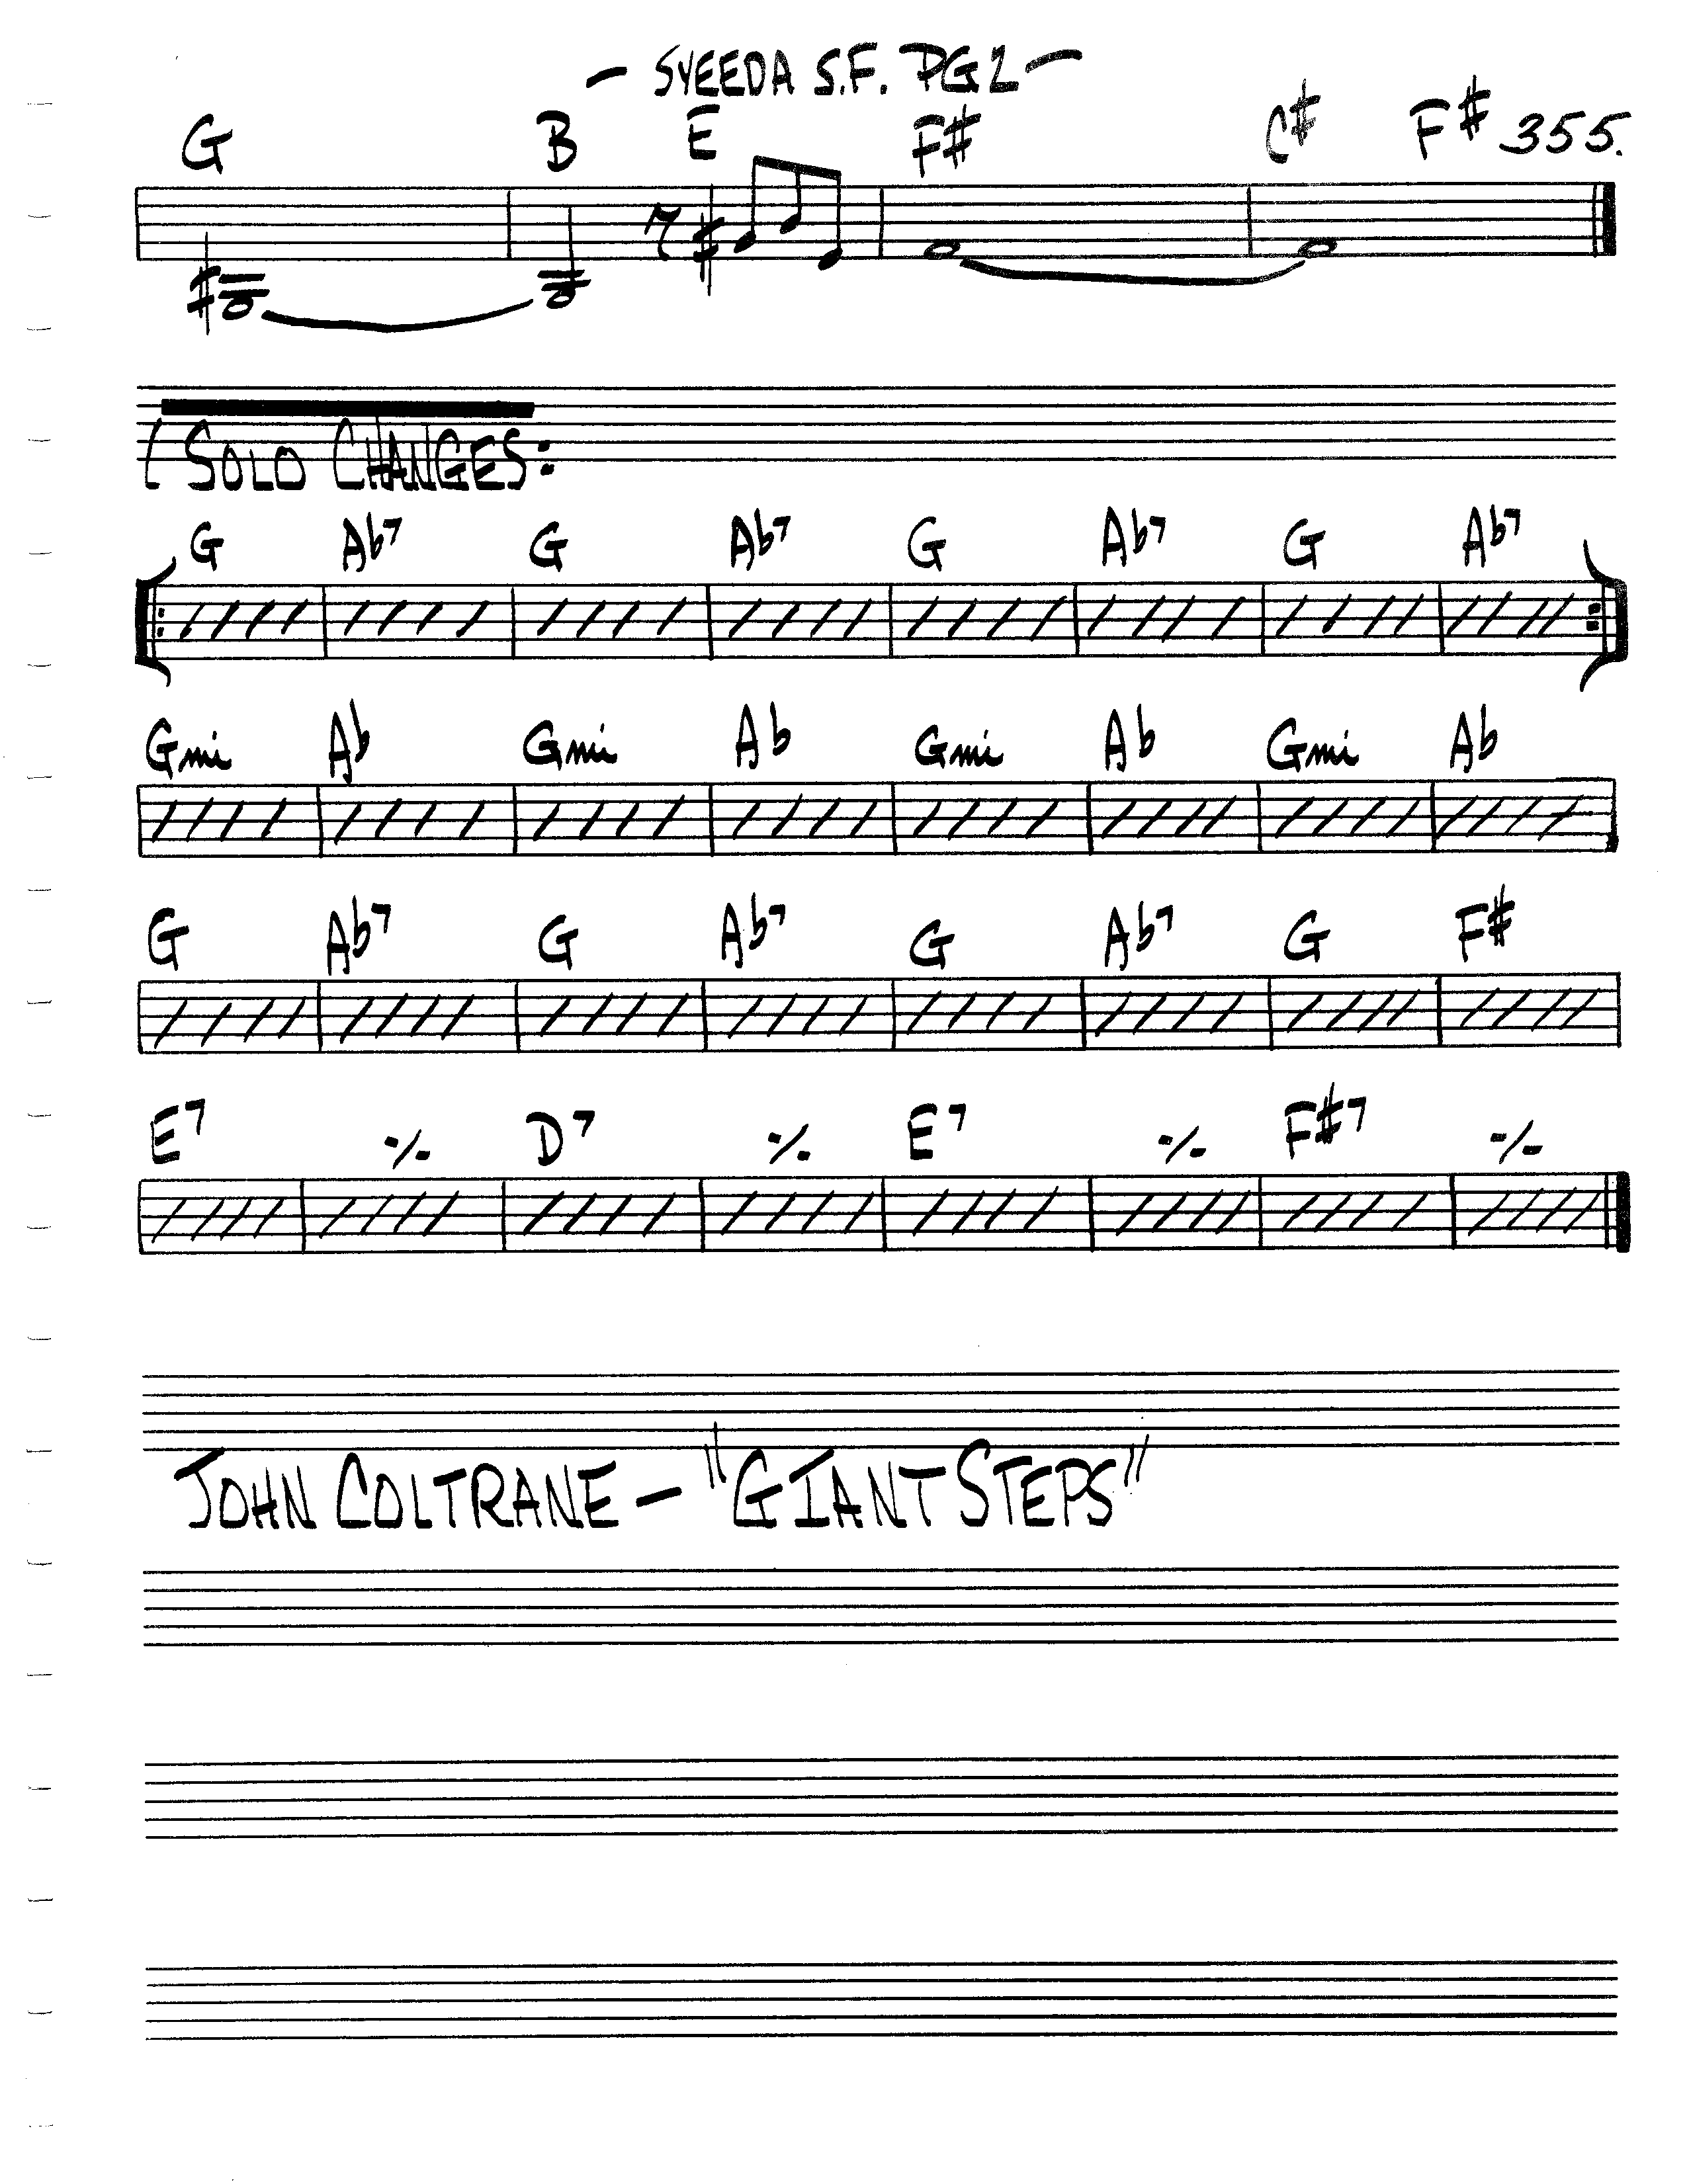 - SYEEDA S.F. PG2 -
G B E F# C# F# 355.
SOLO CHANGES:
G Ab7 G Ab7 G Ab7 G Ab7
Gmi Ab Gmi Ab Gmi Ab Gmi Ab
G Ab7 G Ab7 G Ab7 G F#
E7 ٪ D7 ٪ E7 ٪ F#7 ٪
JOHN COLTRANE - "GIANT STEPS"